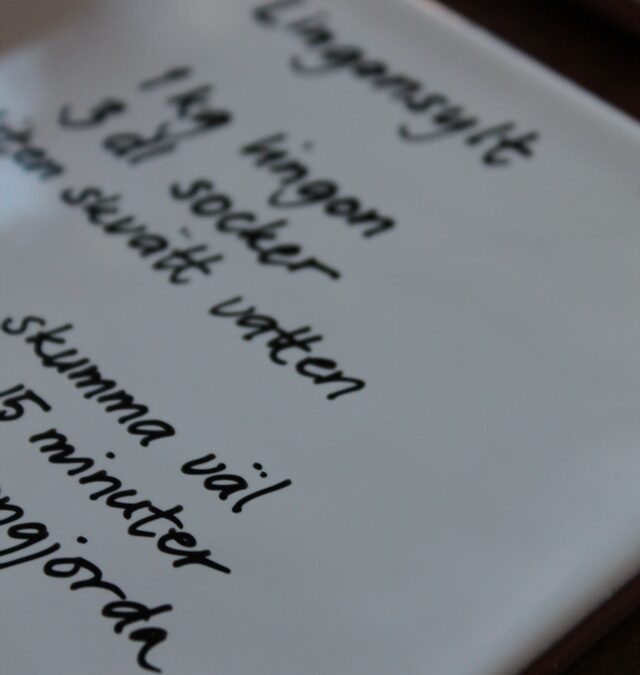 Lingonsylt
1 kg lingon
3 dl socker
liten skvätt vatten
skumma väl
15 minuter